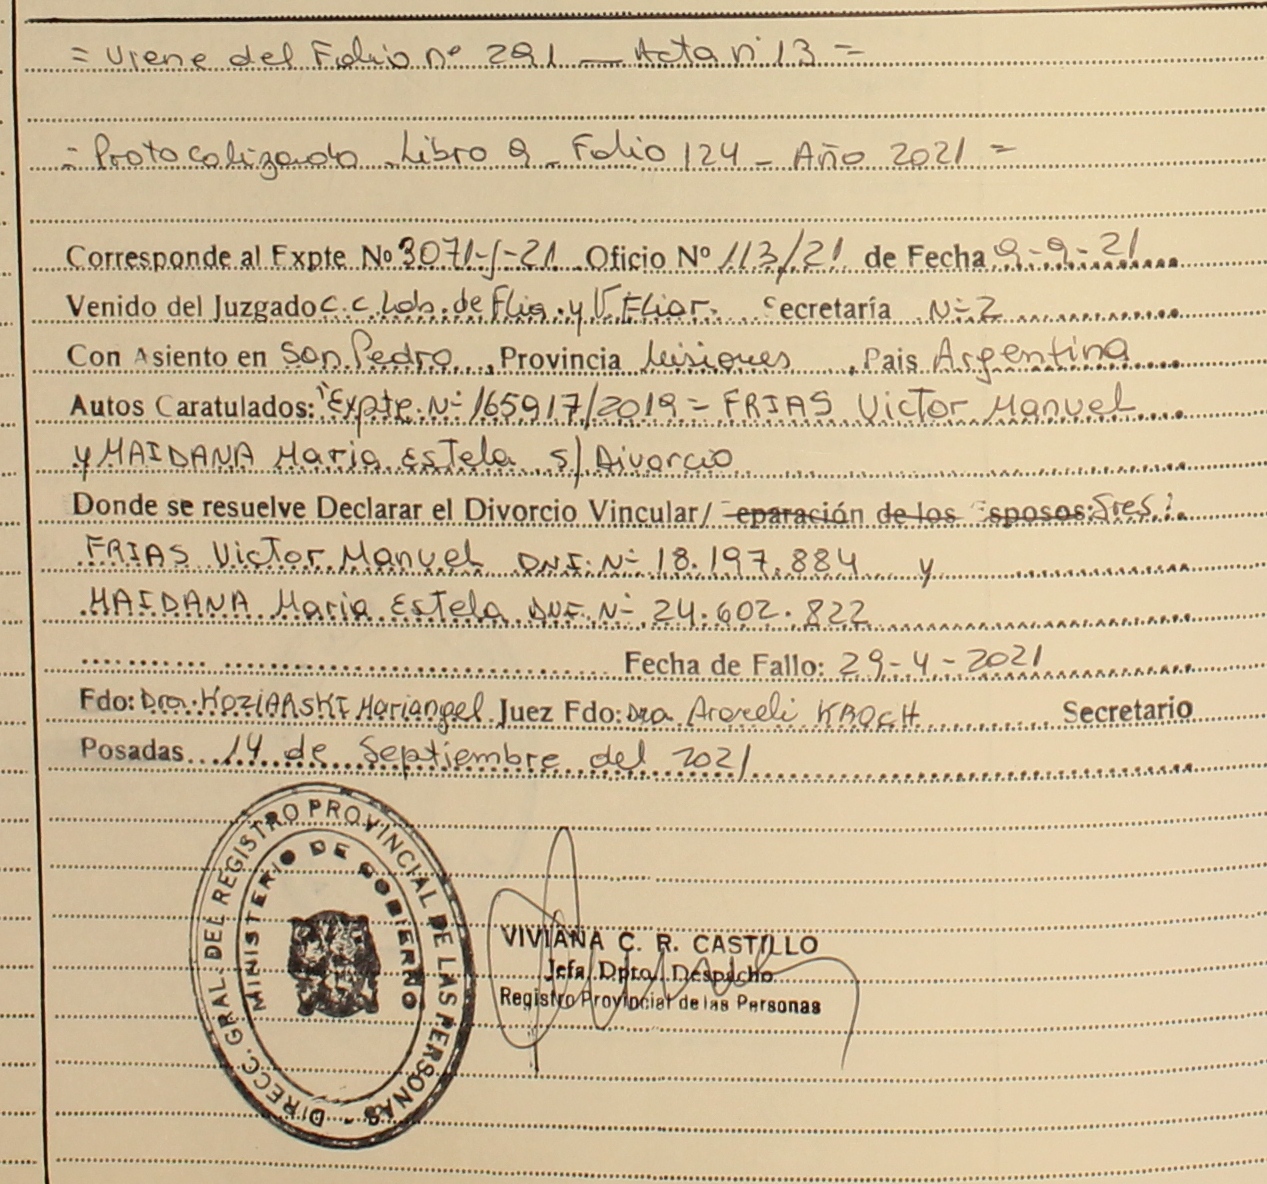 = Viene del Folio nº 291 — Acta nº 13 =
= Protocolizado Libro 9 - Folio 124 - Año 2021 =
Corresponde al Expte Nº 3071-J-21 Oficio Nº 113/21 de Fecha 9-9-21
Venido del Juzgado C.C. Lab. de Flia. y V. Fliar. Secretaría Nº 2
Con Asiento en San Pedro, Provincia Misiones, Pais Argentina
Autos Caratulados: "Expte. Nº 165917/2019 = FRIAS Victor Manuel
y MAIDANA Maria Estela s/ Divorcio
Donde se resuelve Declarar el Divorcio Vincular/ eparación de los sposos: Sres:
FRIAS Victor Manuel DNI. Nº 18.197.884 y
MAIDANA Maria Estela DNI. Nº 24.602.822
Fecha de Fallo: 29-4-2021
Fdo: Dra. KOZIARSKI Mariangel Juez Fdo: Dra Araceli KROCH Secretario
Posadas 14 de Septiembre del 2021
DIRECC. GRAL. DEL REGISTRO PROVINCIAL DE LAS PERSONAS -
MINISTERIO DE GOBIERNO
VIVIANA C. R. CASTILLO
Jefa Dpto. Despacho
Registro Provincial de las Personas